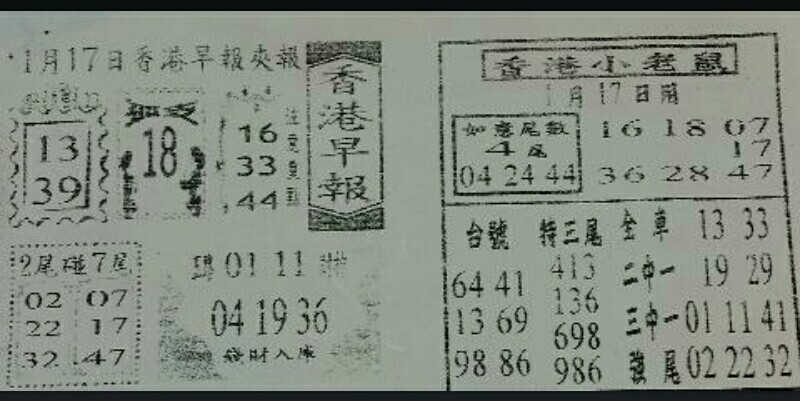 1月17日香港早報夾報
香港早報
13
39
18
16
33
44
2尾碰7尾
02 07
22 17
32 47
01 11
04 19 36
發財入庫
香港小老鼠
1月17日開
如意尾數
4尾
04 24 44
16 18 07
17
36 28 47
台號 特三尾 全車 13 33
64 41 413 二中一 19 29
13 69 136 三中一 01 11 41
98 86 698 強尾 02 22 32
986